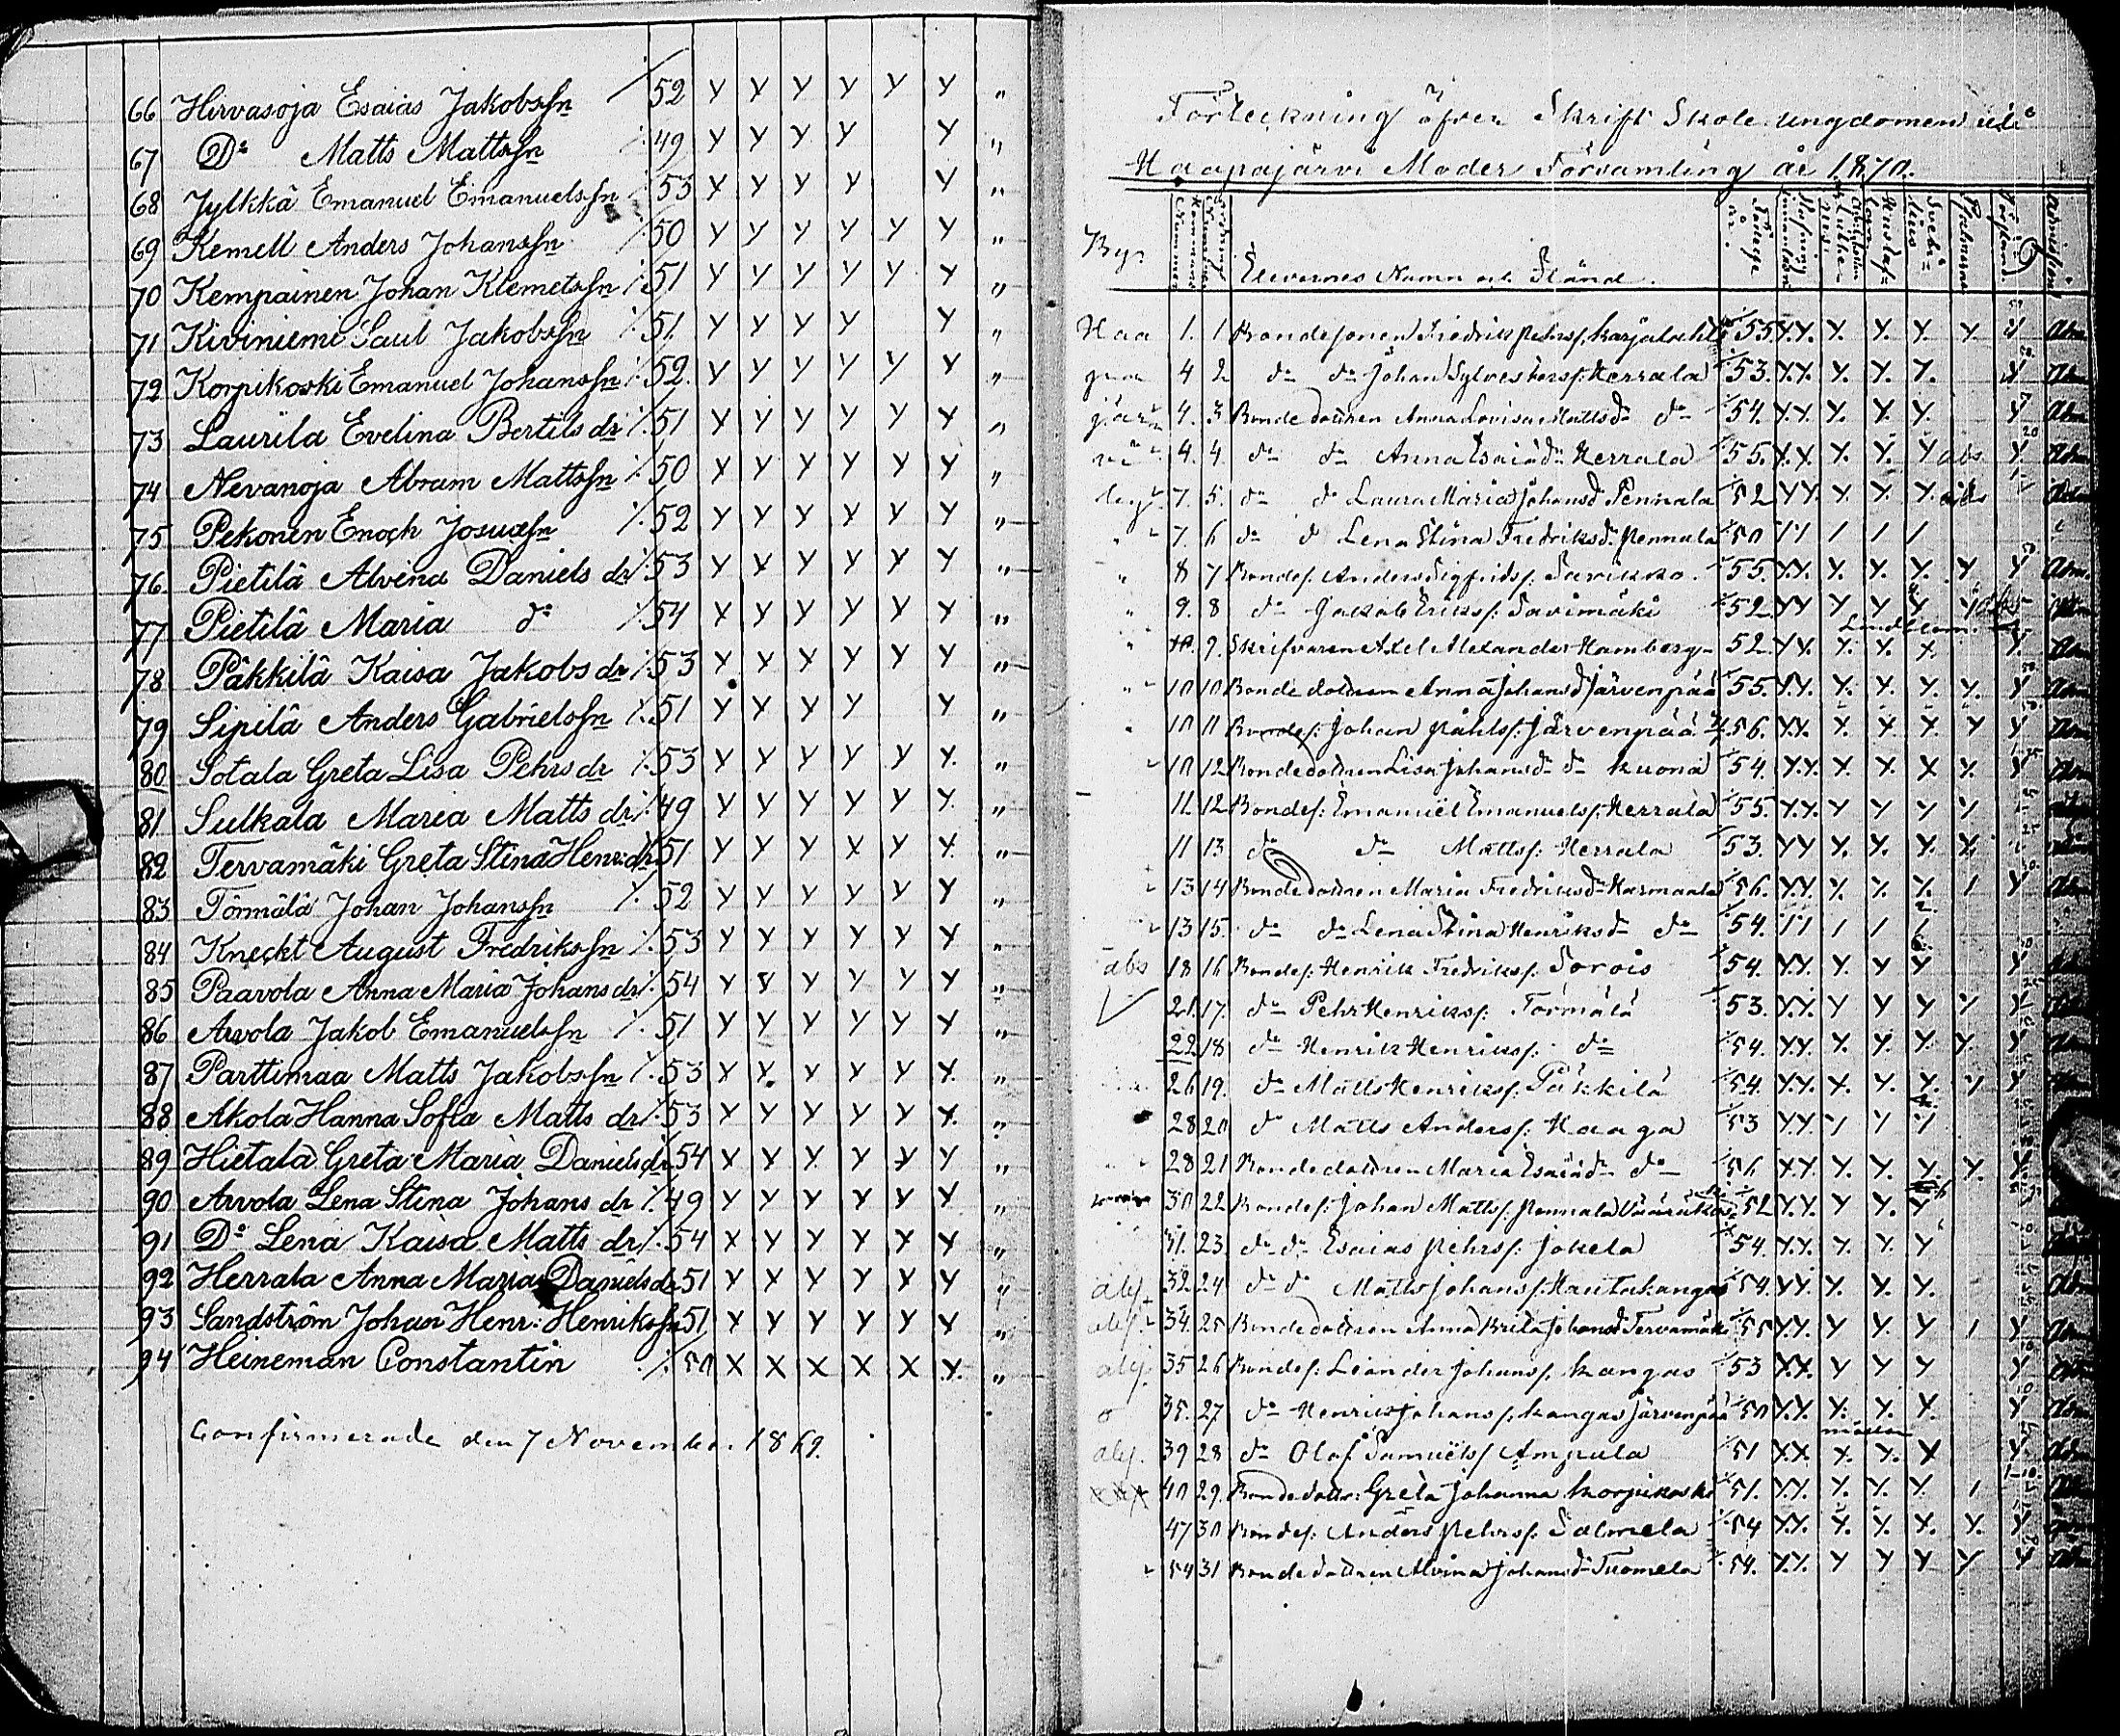 66 Hirvasoja Esaias Jakobssn 52 Y Y Y Y Y Y "
67 Do Matts Mattssn 49 Y Y Y Y Y "
68 Jylkkä Emanuel Emanuelssn 53 Y Y Y Y Y "
69 Kemell Anders Johanssn 50 Y Y Y Y Y Y "
70 Kempainen Johan Klemetssn 51 Y Y Y Y Y Y "
71 Kiviniemi Saul Jakobssn 51 Y Y Y Y Y "
72 Korpikoski Emanuel Johanssn 52 Y Y Y Y Y Y "
73 Laurila Evelina Bertils dr 51 Y Y Y Y Y Y "
74 Nevanoja Abram Mattssn 50 Y Y Y Y Y Y "
75 Pekonen Enoch Josuæsn 52 Y Y Y Y Y Y "
76 Pietilä Alvina Daniels dr 53 Y Y Y Y Y Y "
77 Pietilä Maria do 54 Y Y Y Y Y Y "
78 Päkkilä Kaisa Jakobs dr 53 Y Y Y Y Y Y "
79 Sipilä Anders Gabrielssn 51 Y Y Y Y Y "
80 Sotala Greta Lisa Pehrs dr 53 Y Y Y Y Y Y "
81 Sulkala Maria Matts dr 49 Y Y Y Y Y Y "
82 Tervamäki Greta Stina Henr: dr 51 Y Y Y Y Y Y "
83 Törmälä Johan Johanssn 52 Y Y Y Y Y Y "
84 Kneckt August Fredrikssn 53 Y Y Y Y Y Y "
85 Paavola Anna Maria Johans dr 54 Y Y Y Y Y Y "
86 Arvola Jakob Emanuelssn 51 Y Y Y Y Y Y "
87 Parttimaa Matts Jakobssn 53 Y Y Y Y Y Y "
88 Akola Hanna Sofia Matts dr 53 Y Y Y Y Y Y "
89 Hietala Greta Maria Daniels dr 54 Y Y Y Y Y Y "
90 Arvola Lena Stina Johans dr 49 Y Y Y Y Y Y "
91 Do Lena Kaisa Matts dr 54 Y Y Y Y Y Y "
92 Herrala Anna Maria Daniels dr 51 Y Y Y Y Y Y "
93 Sandström Johan Henr: Henrikssn 51 Y Y Y Y Y Y "
94 Heineman Constantin 50 X X X X X X "
Confirmerade den 7 November 1869.
Förteckning öfver Skrift Skole ungdomen uti
Haapajärvi Moder Församling år 1870.
By: Elevernes Namn och Stånd. Födelse år.
Haa 1. 1 Bondesonen Fredrik Pehrss. Karjalahti 55 Y.Y. Y. Y. Y. Y. Y Adm
4 2 do do Johan Sylvestersss. Herrala 53. Y.Y. Y. Y. Y. Y Adm
4. 3 Bonde dottren Anna Lovisa Mattsdr do 54. Y.Y. Y. Y. Y. Y Adm
4. 4 do do Anna Esaiædr Herrala 55. Y.Y. Y. Y. Y abs Y Adm
7. 5. do do Laura Maria Johansd. Pennala 52 Y.Y. Y. Y. Y. abs
7. 6 do do Lena Stina Fredriksd. Pennala 50 / / / / /
8 7 Bondes. Anders Sigfridss. Savikko. 55. Y.Y. Y. Y. Y. Y Y Adm.
9. 8 do Jakob Erikss. Savimäki 52. Y Y Y Y Y Y
9. Skrifvaren Axel Alexander Hamberg 52. Y.Y. Y. Y. Y. Y.
10 10 Bonde dottren Anna Johansd Järvenpää 55. Y.Y. Y. Y. Y. Y. Y Adm
10 11 Bondes. Johan Påhlss. Järvenpää 56. Y.Y. Y. Y. Y. Y Y Adm
10 12 Bondedottren Lisa Johansdr do Kuona 54. Y.Y. Y. Y. Y Y. Y Adm
11. 12 Bondes. Emanuël Emanuelss. Herrala 55. Y.Y. Y Y Y Y
11 13 do do Mattss. Herrala 53. Y Y Y. Y. Y. Y.
13 14 Bondedottren Maria Fredriksdr Harmaala 56. Y.Y. Y. Y. Y. / Y Adm
13 15. do do Lena Stina Henriksdr do 54. / / / / /
abs 18 16 Bondes. Henrik Fredrikss. Sorois 54. Y.Y. Y. Y Y Y
21. 17. do Pehr Henrikss. Törmälä 53. Y.Y. Y Y Y Y Y
22. 18 do Henrik Henrikss. do 54. Y.Y. Y. Y. Y. Y. Y
26 19. do Matts Henrikss. Päkkilä 54. Y.Y. Y. Y. Y. Y Y
28 20 do Matts Anderss. Haaga 53 Y.Y. Y Y Y
28 21 Bondedottren Maria Esaiædr do 56 Y.Y. Y. Y. Y. Y. Y
30 22 Bondes. Johan Mattss. Pennala 52 Y.Y. Y. Y. Y
31. 23. do do Esaias Pehrss. Jokela 54. Y.Y. Y. Y. Y
32. 24 do do Matts Johanss. Hautakangas 54. Y.Y. Y. Y. Y. Adm
34. 25 Bondedottren Anna Brita Johansd. Tervamäki 55 Y.Y. Y Y. Y / Y Adm
35 26 Bondes. Leander Johanss. Kangas 53 Y.Y. Y Y Y Y Adm
35. 27 do Henrik Johanss. Kangas Järvenpää 50 Y.Y. Y. Y. Y. Y Adm
39 28 do Olof Samuëlss. Ampula 51 Y.Y. Y. Y. Y Y Adm
40 29. Bondedottr: Greta Johanna Korpikoski 51. Y.Y. Y. Y. Y. / Y
47 30 Bondes. Anders Pehrss. Salmela 54 Y.Y. Y. Y. Y. Y. Y
54 31 Bondedottren Alvina Johansdr Tuomela 54. Y.Y. Y Y Y Y Y Adm